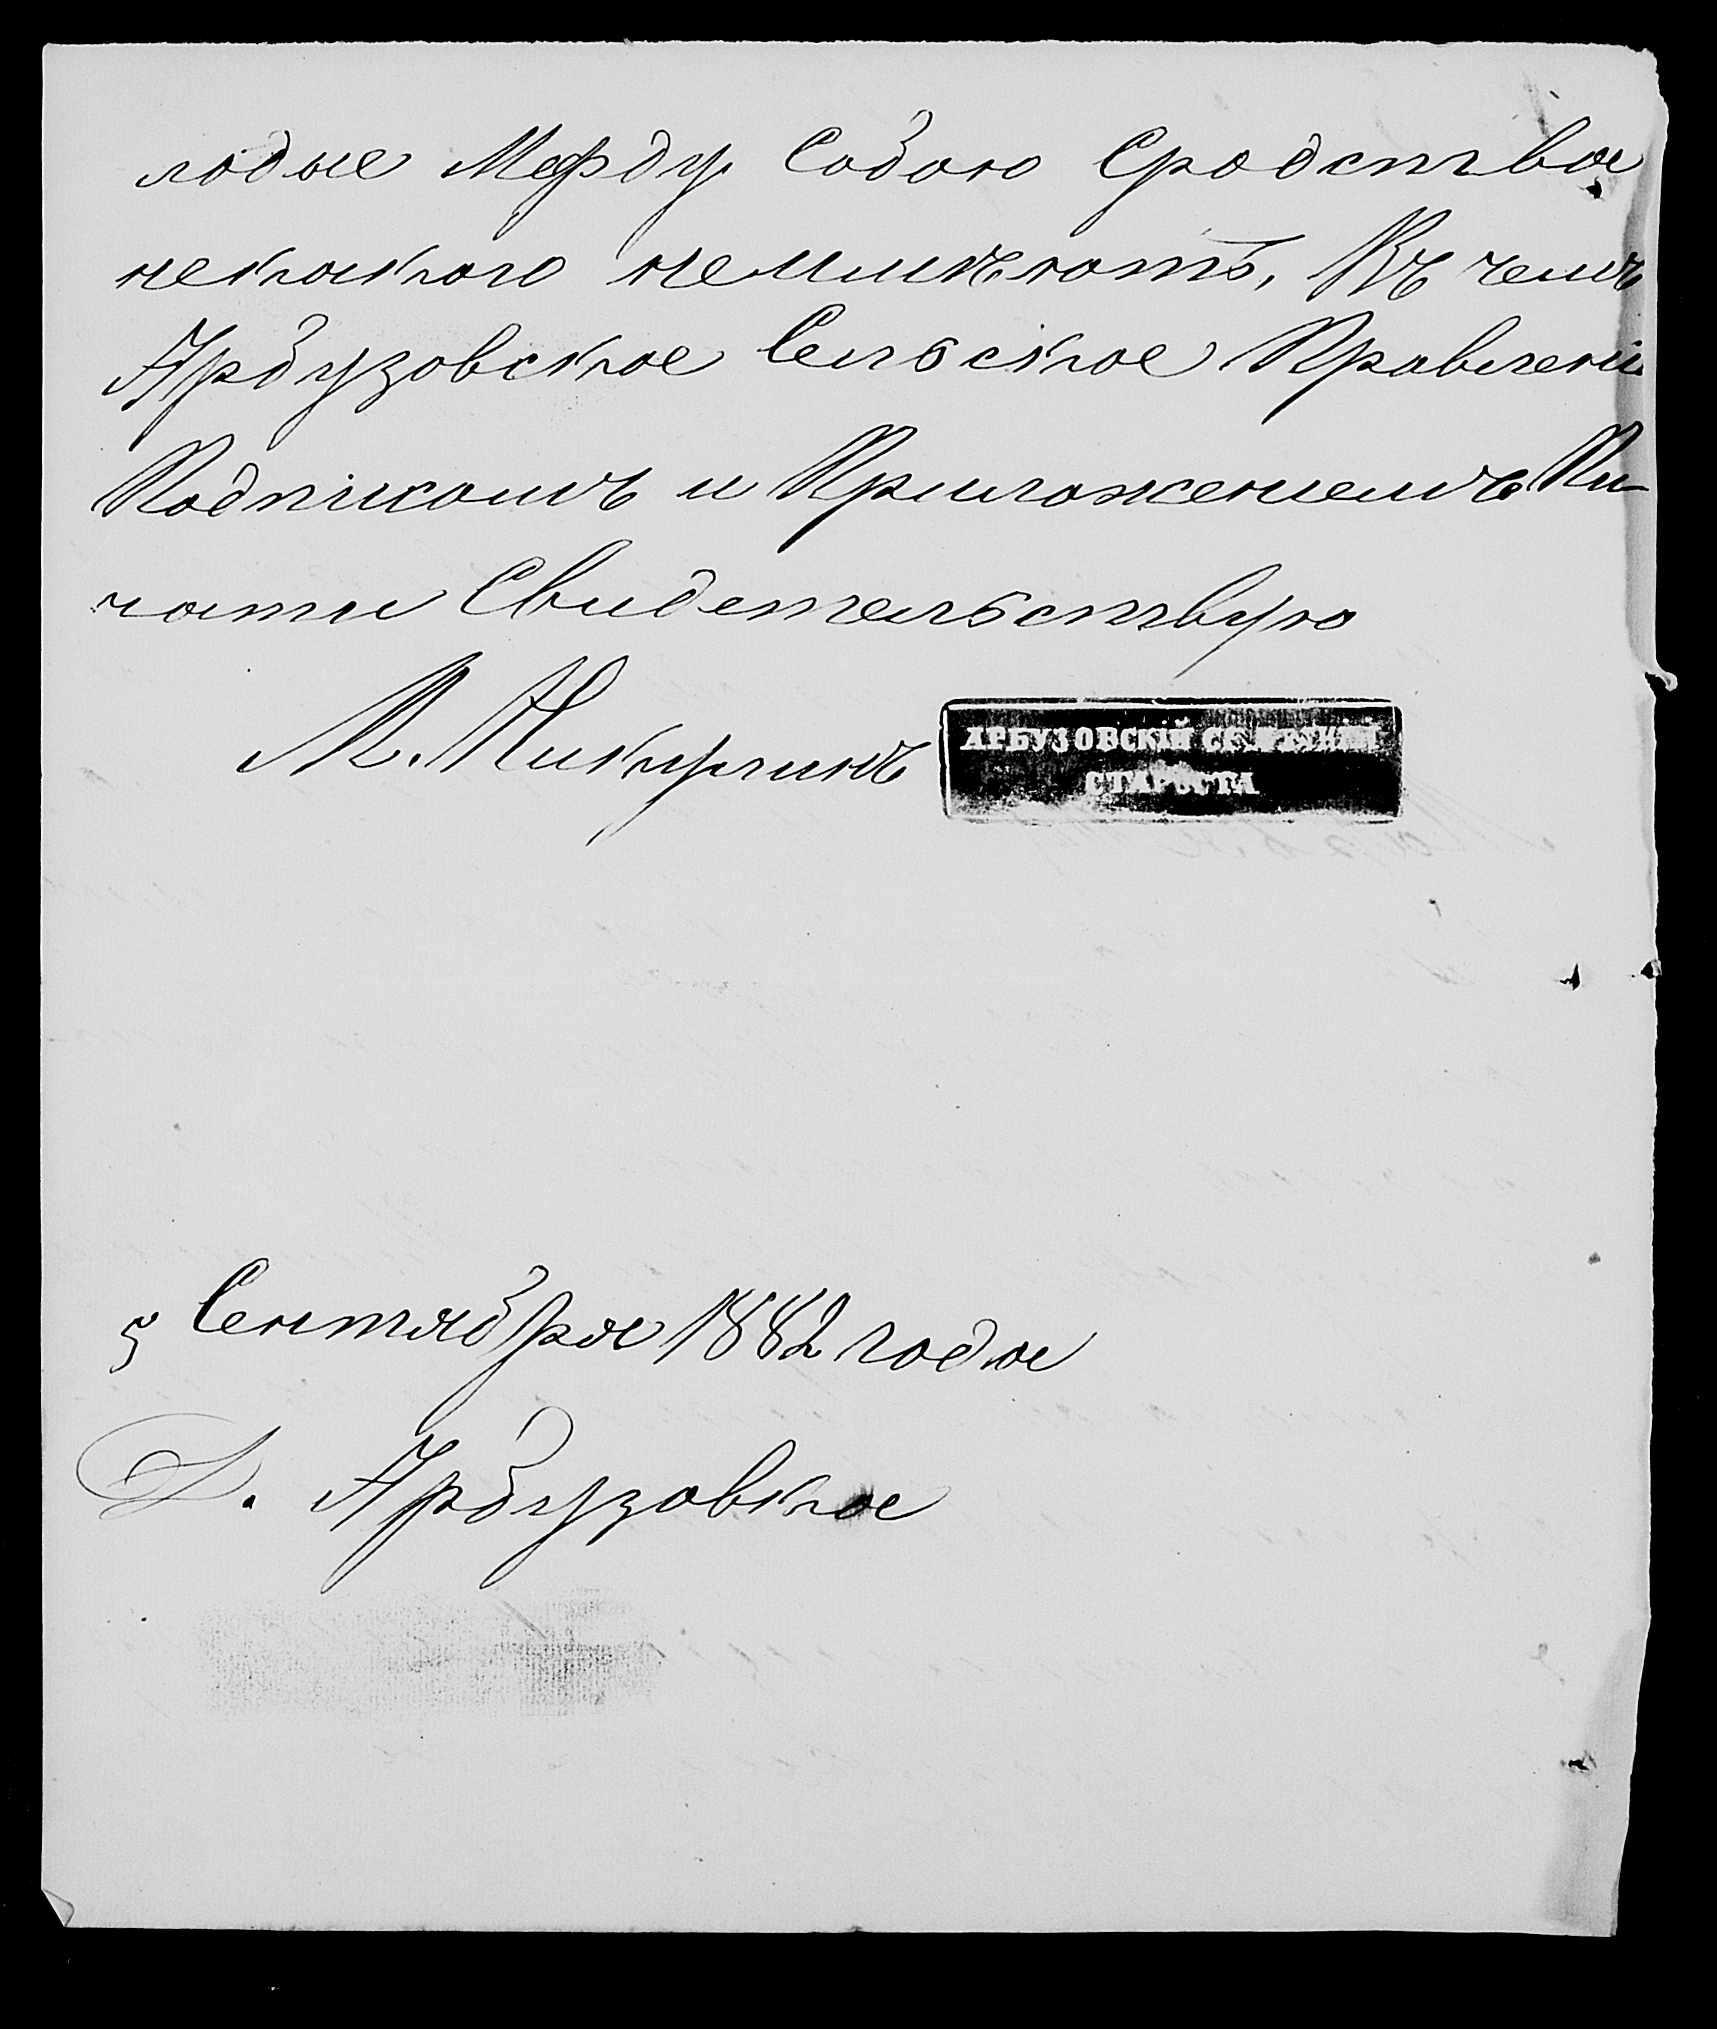 лодые Между Собою Сродства
некакого неимѣютъ, Въ чемъ
Арбузовское Сельское Правлени
Подпискомъ и Приложениемъ Пи-
чати Свидетельствую
М. Никулинъ
АРБУЗОВСКІЙ СЕЛЬСКІЙ
СТАРОСТА
5 Сентября 1882 года
Д. Арбузовка